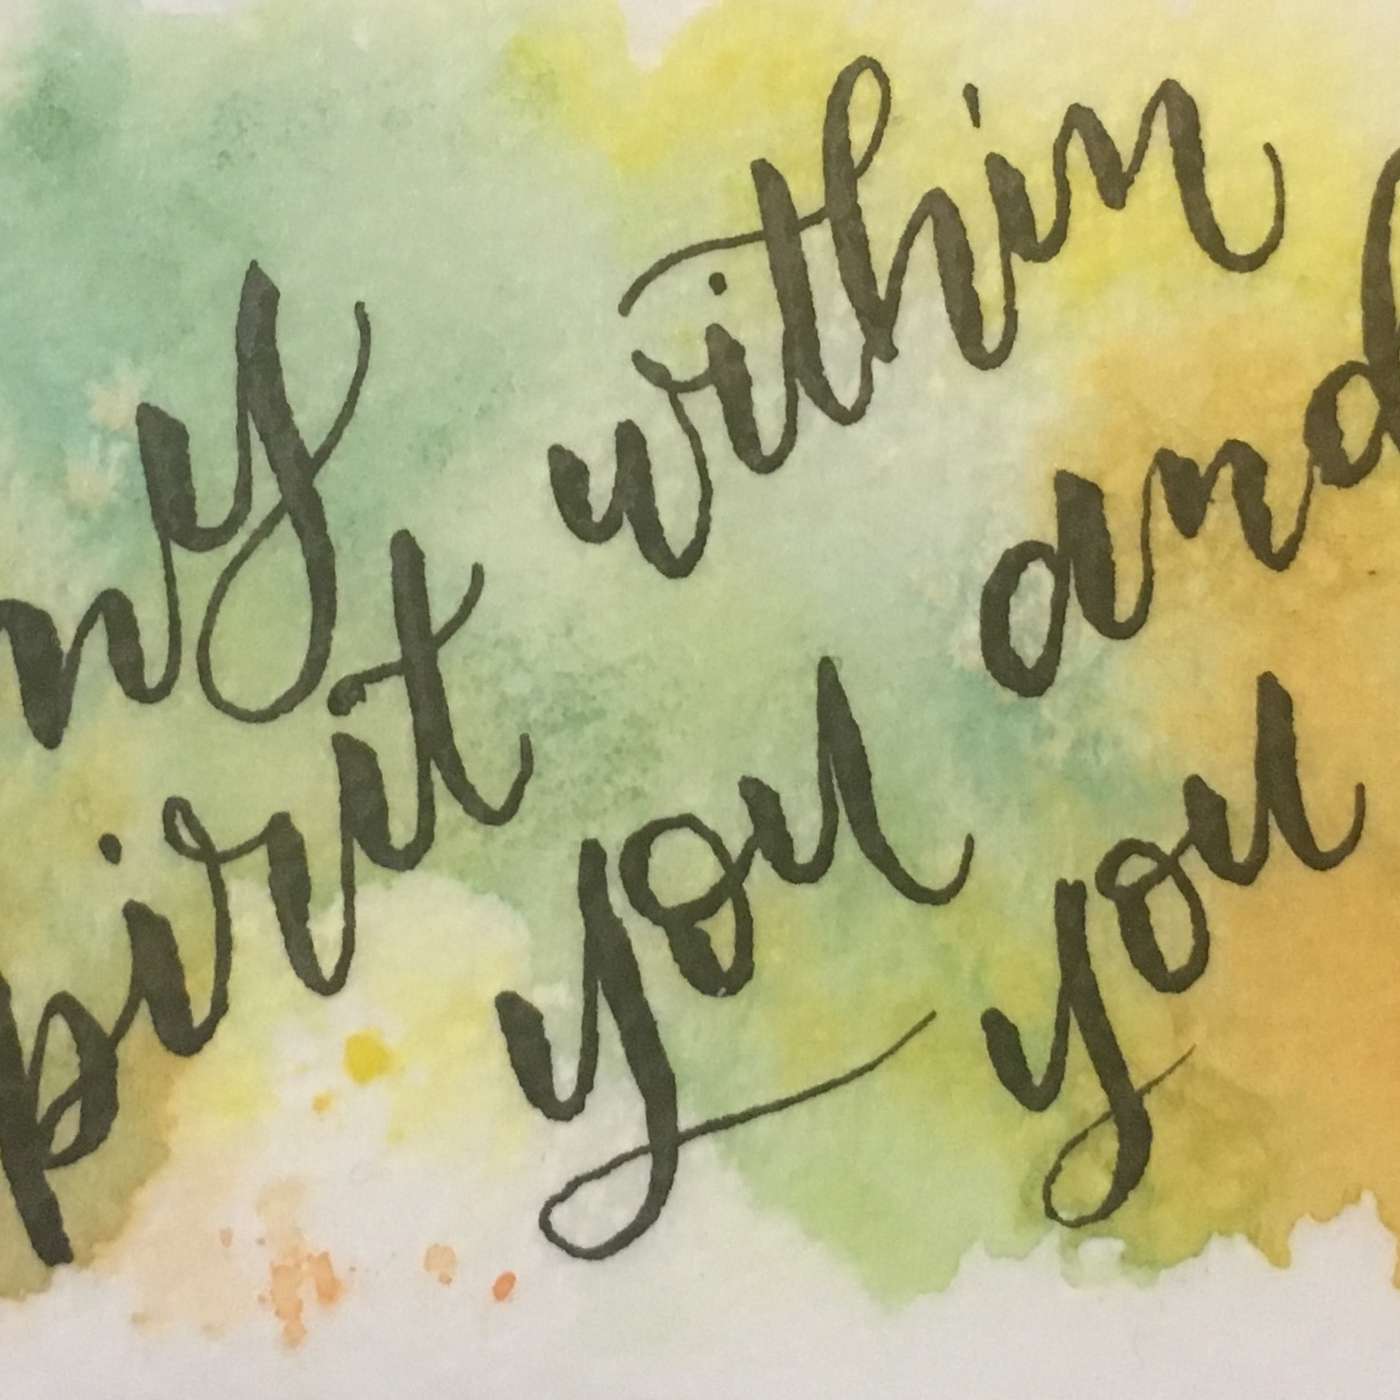 my within and
pirit you you